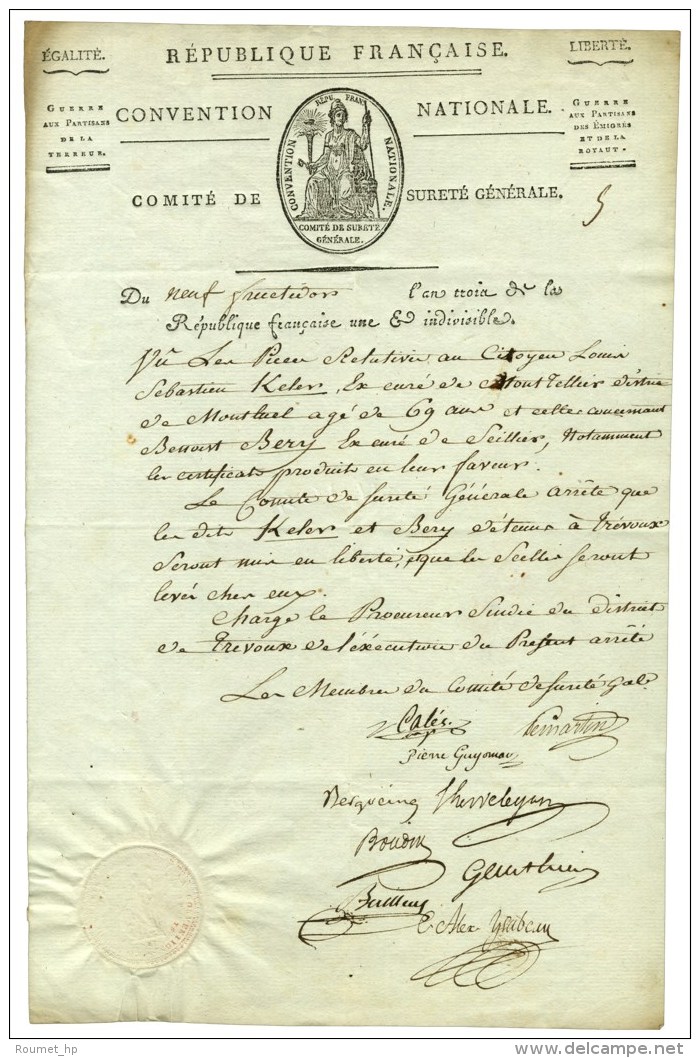 ÉGALITÉ. RÉPUBLIQUE FRANÇAISE. LIBERTÉ.
GUERRE
AUX PARTISANS
DE LA
TERREUR.
CONVENTION NATIONALE.
GUERRE
AUX PARTISANS
DES ÉMIGRÉS
ET DE LA
ROYAUT.
RÉPU. FRAN.
CONVENTION NATIONALE.
COMITÉ DE SURETÉ
GÉNÉRALE.
COMITÉ DE SURETÉ GÉNÉRALE.
5
Du neuf fructidor l'an trois de la
République française une & indivisible.
Vu Les Pieces Relatives au Citoyen Louis
Sebastien Keler, Ex curé de Montellier district
de Montluel agé de 69 ans et celles concernant
Benoist Bery Ex curé de Seillier, Notamment
les certificats produits en leur faveur.
Le Comité de sureté Générale arrête que
les dits Keler et Bery détenus à Trévoux
Seront mis en liberté, et que les Scellés seront
levés chez eux.
Charge le Procureur Sindic du district
de Trévoux de l'éxécution du Présent arrêté
Les Membres du Comité de sureté Gale.
Calés. Lemartin
Pierre Guyomar
Bergoeing
Boudin
Gauthier
Bailleul
C Alex Ysabeau
Roumet_hp
delcampe.net